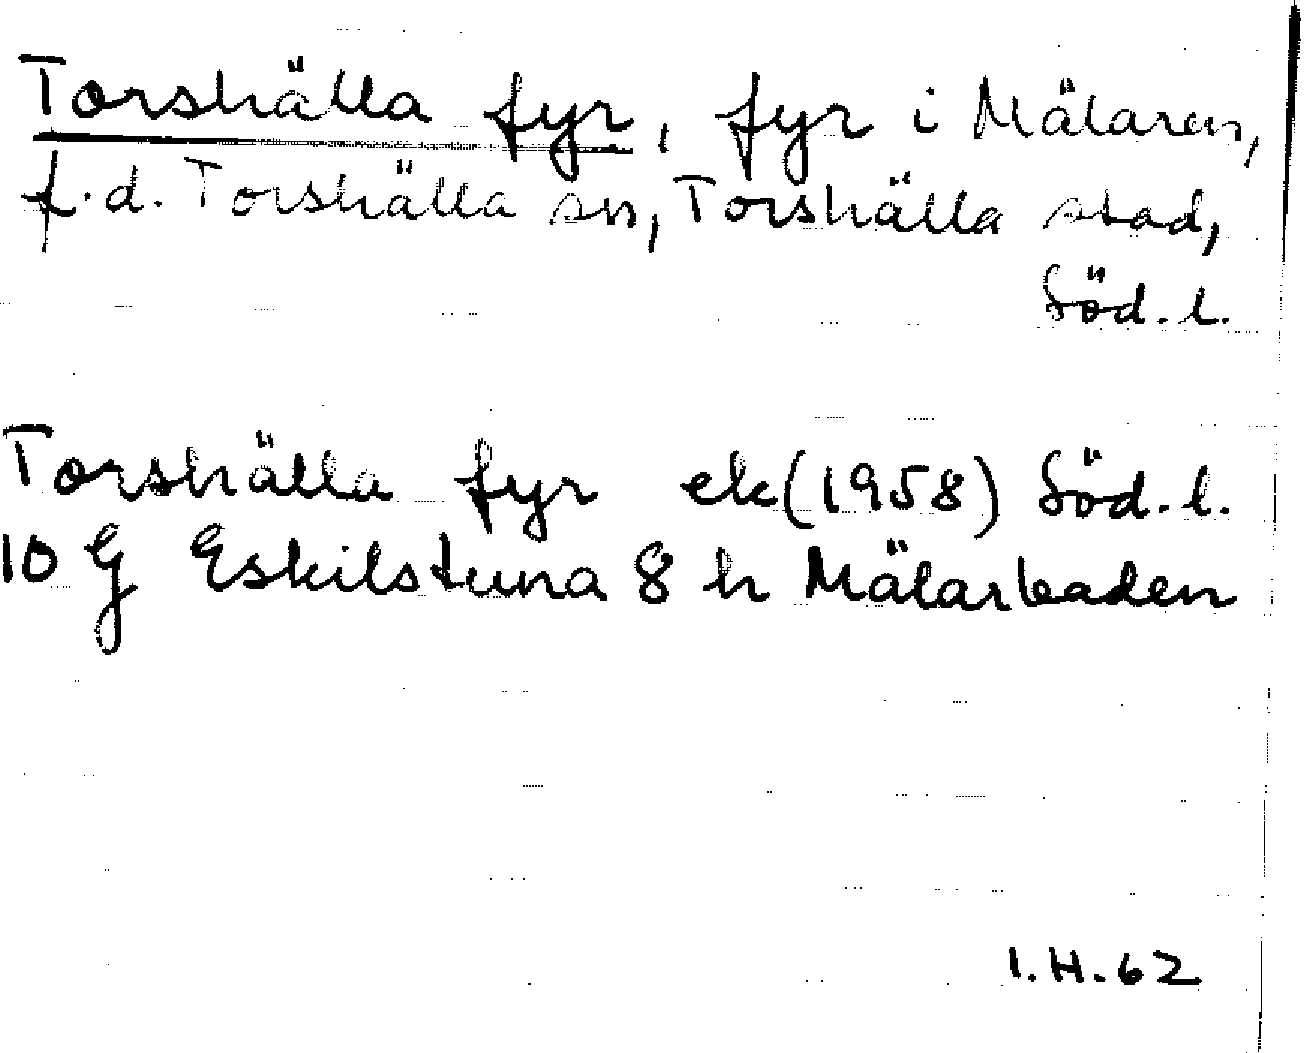 Torshälla fyr, fyr i Mälaren,
f.d. Torshälla sn, Torshälla stad,
Söd. l.
Torshälla fyr ek (1958) Söd. l.
10 G Eskilstuna 8 h Mälarbaden
I.H.62